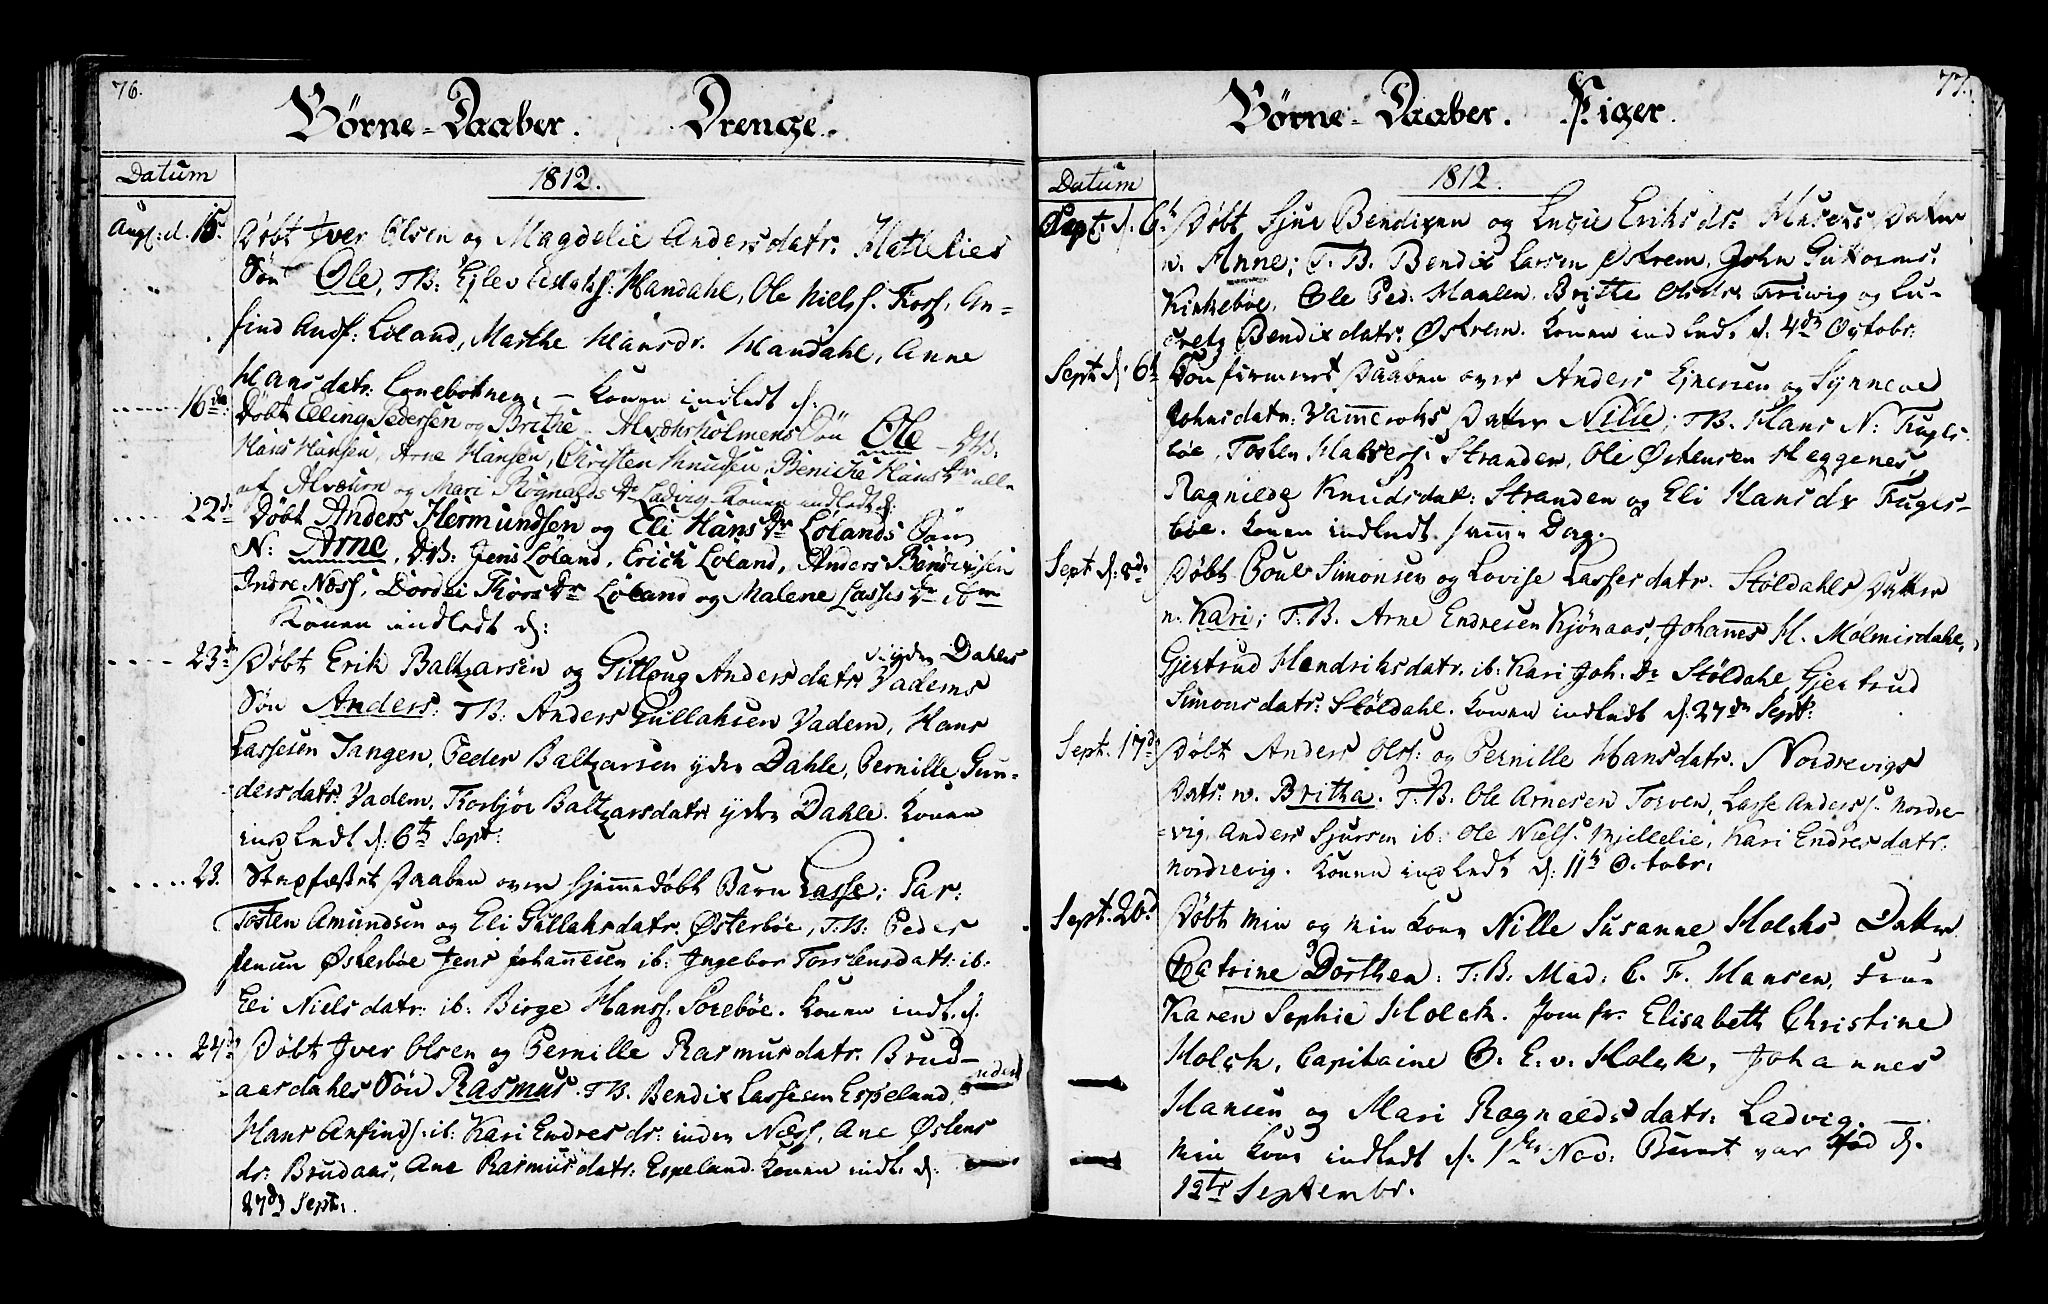 76.
Børne-Daaber. Drenge.
Datum
1812.
Aug: d. 15. Døbt Iver Olsen og Magdelie Andersdatr: Hatlelies
Søn Ole, T.B: Handahl, Ole Nielss. Foss, An-
find Andss: Löland, Marthe Hansdr. Handahl, Anne
Hansdatr: Lonebotnen, – Konen indledt d:
16de: Døbt Elling Pedersen og Brithe Alvæhrholmens Søn Ole – T.B.
Hans Hansen, Arne Hansen, Christen Knudsen, Benicke Hans Dr alle
af Alvæurn og Mari Rognalds Dr Ladvig Konen indledt d:
22d: Døbt Anders Hermundsen og Eli Hans Dr Lölands Søn
N: Arne, T.B: Jens Löland, Erich Löland, Anders Bendixsen
Indre Næss, Dordei Thors Dr Löland og Malene Lasses Dr ibm
Konen indledt d:
23d Døbt Erik Baltzarsen og Gitloug Andersdatr: Vadems ydre Dahles
Søn Anders: T.B: Anders Gullaksen Vadem, Hans
Lassesen Tangen, Peder Baltzarsen ydre Dahle, Pernille Gun-
dersdatr: Vadem, Torbjör Baltzarsdatr ydre Dahle. Konen
indledt d: 6te Sept:
23. Stadfæstet Daaben over hjemmedøbt Barn Lasse; Par:
Tosten Amundsen og Eli Gullaksdatr. Østerböe, T.B: Peder
Jensen Østerböe Jens Johannesen ib: Ingebor Torstensdatr: ib:
Eli Nielsdatr: ib: Birge Hanss: Sorebøe. Konen indl. d.
24d Døbt Iver Olsen og Pernille Rasmusdatr: Brud-
aasdahls Søn Rasmus. T.B. Bendix Lassesen Espeland,
Hans Anfinds: ib: Kari Endresdr: indre Næss, Ane Østens
dr: Brudaas, Ane Rasmusdatr: Espeland. Konen indl: d:
27d Sept:
77.
Børne-Daaber. Piger.
Datum
1812.
Sept: d. 6t Døbt Sjur Bendixen og Lucie Eriksdr: Datter
n. Anne; T.B. Bendix Larsen Østrem, John Guttorms:
Kirkebøe, Ole Ped: Maalen, Brithe Olsdr og Lu-
cretz Bendixdatr: Østrem. Konen indledt d. 4de Octobr:
Sept d: 6t Confirmeret Daaben over Anders Ejnersen og Synneve
Johnsdatr: Datter Nille; T.B. Hans N: Fugle-
böe, Tosten Halvers: Stranden, Ole Østensen Skeggenes,
Ragnilde Knudsdat: Stranden og Eli Hansdr Fugles-
böe. Konen indledt samme Dag.
Sept d: Døbt Poul Simonsen og Lovise Lassesdatr. Stöldahls Datter
n. Kari; T.B. Arne Endresen Kjönaas, Johannes H. Molmisdahl,
Gjertrud Hendriksdatr. ib: Kari Joh: Dr Stöldahl Gjertrud
Simonsdatr: Stöldahl. Konen indledt d: 27de Sept:
Sept. 17d Døbt Anders Olss: og Pernille Hansdatr. Nordrevigs
Datr: n. Britha. T.B: Ole Arnesen Torven, Lasse Anders: Nordre-
vig, Anders Sjursen ib: Ole Niels: Mjellelie, Kari Endresdatr:
Nordrevig. Konen indledt d: 11te Octobr:
Sept. 20d Døbt min og min Kone Nille Susanne Holcks Datter
Catrine Dorthea: T.B: Mad: C. F. Hansen, Frue
Karen Sophie Holck. Jomfr. Elisabeth Christine
Holck, Capitaine O. E. v. Holck, Johannes
Hansen og Mari Rognaldsdatr: Ladvig. –
min Kone indledt d: 1ste Nov: Barnet var fød d.
12te Septembr.